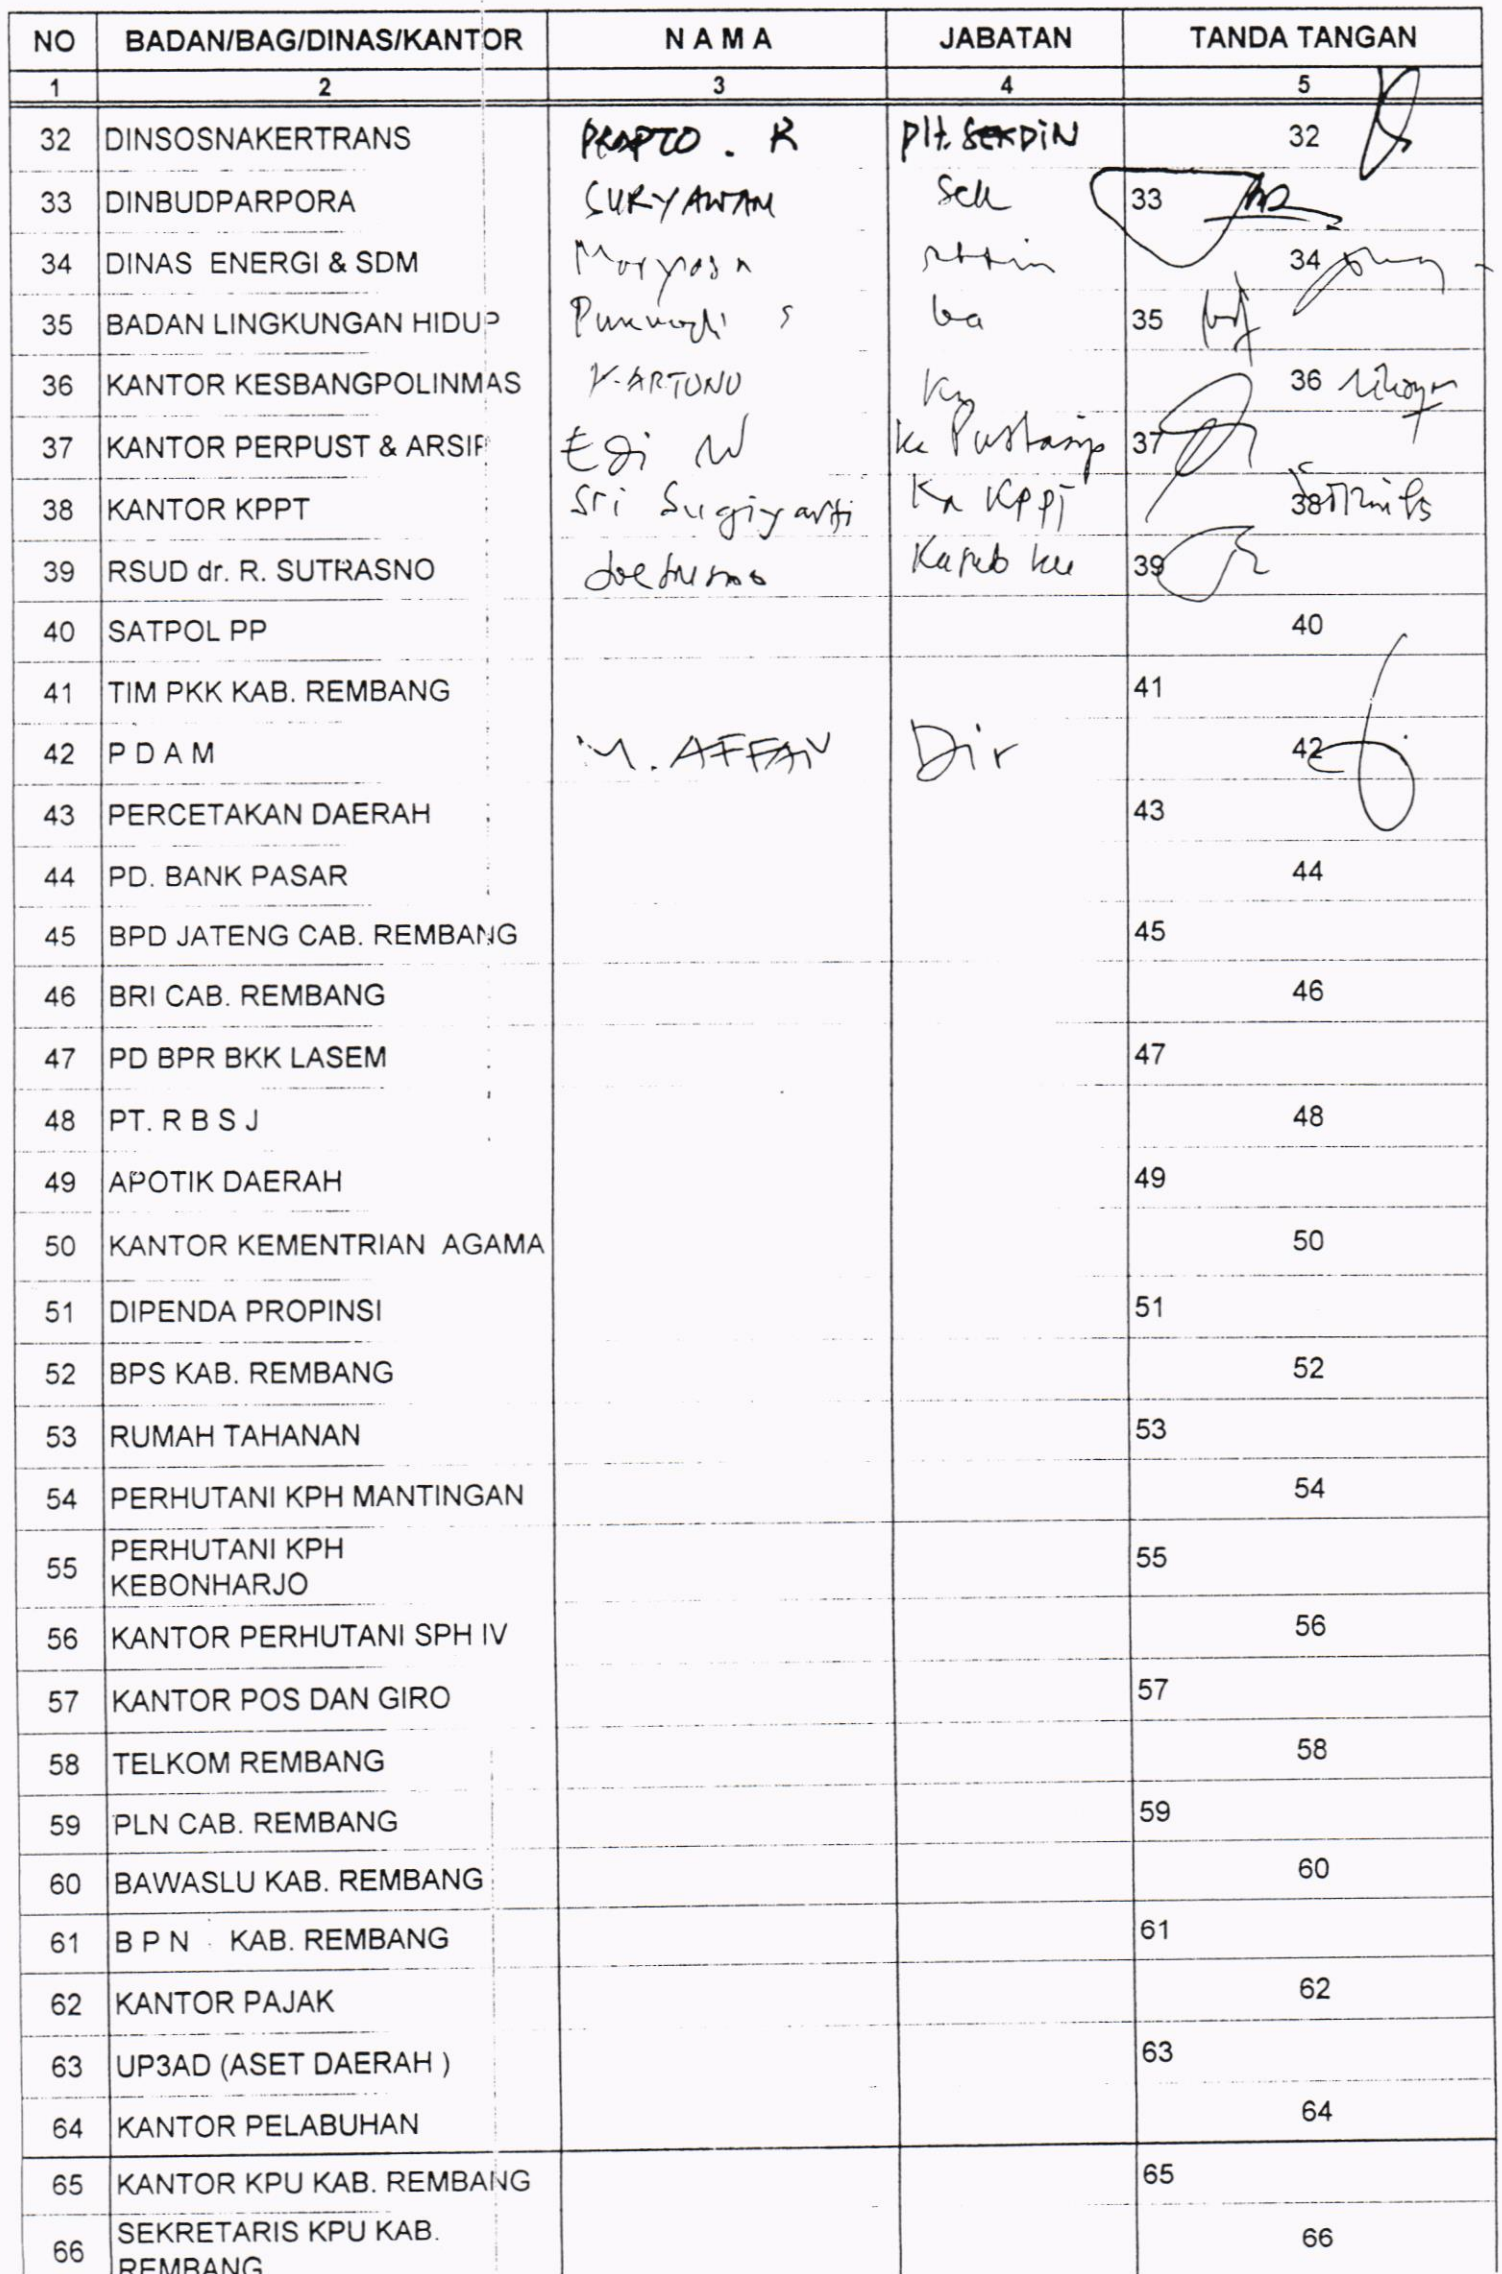 NO BADAN/BAG/DINAS/KANTOR N A M A JABATAN TANDA TANGAN
1 2 3 4 5
32 DINSOSNAKERTRANS PRAPTO . R plt. SEKDIN 32
33 DINBUDPARPORA SURYAWAN Sek 33
34 DINAS ENERGI & SDM 34
35 BADAN LINGKUNGAN HIDUP 35
36 KANTOR KESBANGPOLINMAS KARTONO Ka 36
37 KANTOR PERPUST & ARSIP Edi W 37
38 KANTOR KPPT Sri Sugiyarti Ka KPPT 38
39 RSUD dr. R. SUTRASNO 39
40 SATPOL PP 40
41 TIM PKK KAB. REMBANG 41
42 P D A M M. AFFAN Dir 42
43 PERCETAKAN DAERAH 43
44 PD. BANK PASAR 44
45 BPD JATENG CAB. REMBANG 45
46 BRI CAB. REMBANG 46
47 PD BPR BKK LASEM 47
48 PT. R B S J 48
49 APOTIK DAERAH 49
50 KANTOR KEMENTRIAN AGAMA 50
51 DIPENDA PROPINSI 51
52 BPS KAB. REMBANG 52
53 RUMAH TAHANAN 53
54 PERHUTANI KPH MANTINGAN 54
55 PERHUTANI KPH 55
KEBONHARJO
56 KANTOR PERHUTANI SPH IV 56
57 KANTOR POS DAN GIRO 57
58 TELKOM REMBANG 58
59 PLN CAB. REMBANG 59
60 BAWASLU KAB. REMBANG 60
61 B P N KAB. REMBANG 61
62 KANTOR PAJAK 62
63 UP3AD (ASET DAERAH ) 63
64 KANTOR PELABUHAN 64
65 KANTOR KPU KAB. REMBANG 65
66 SEKRETARIS KPU KAB. 66
REMBANG